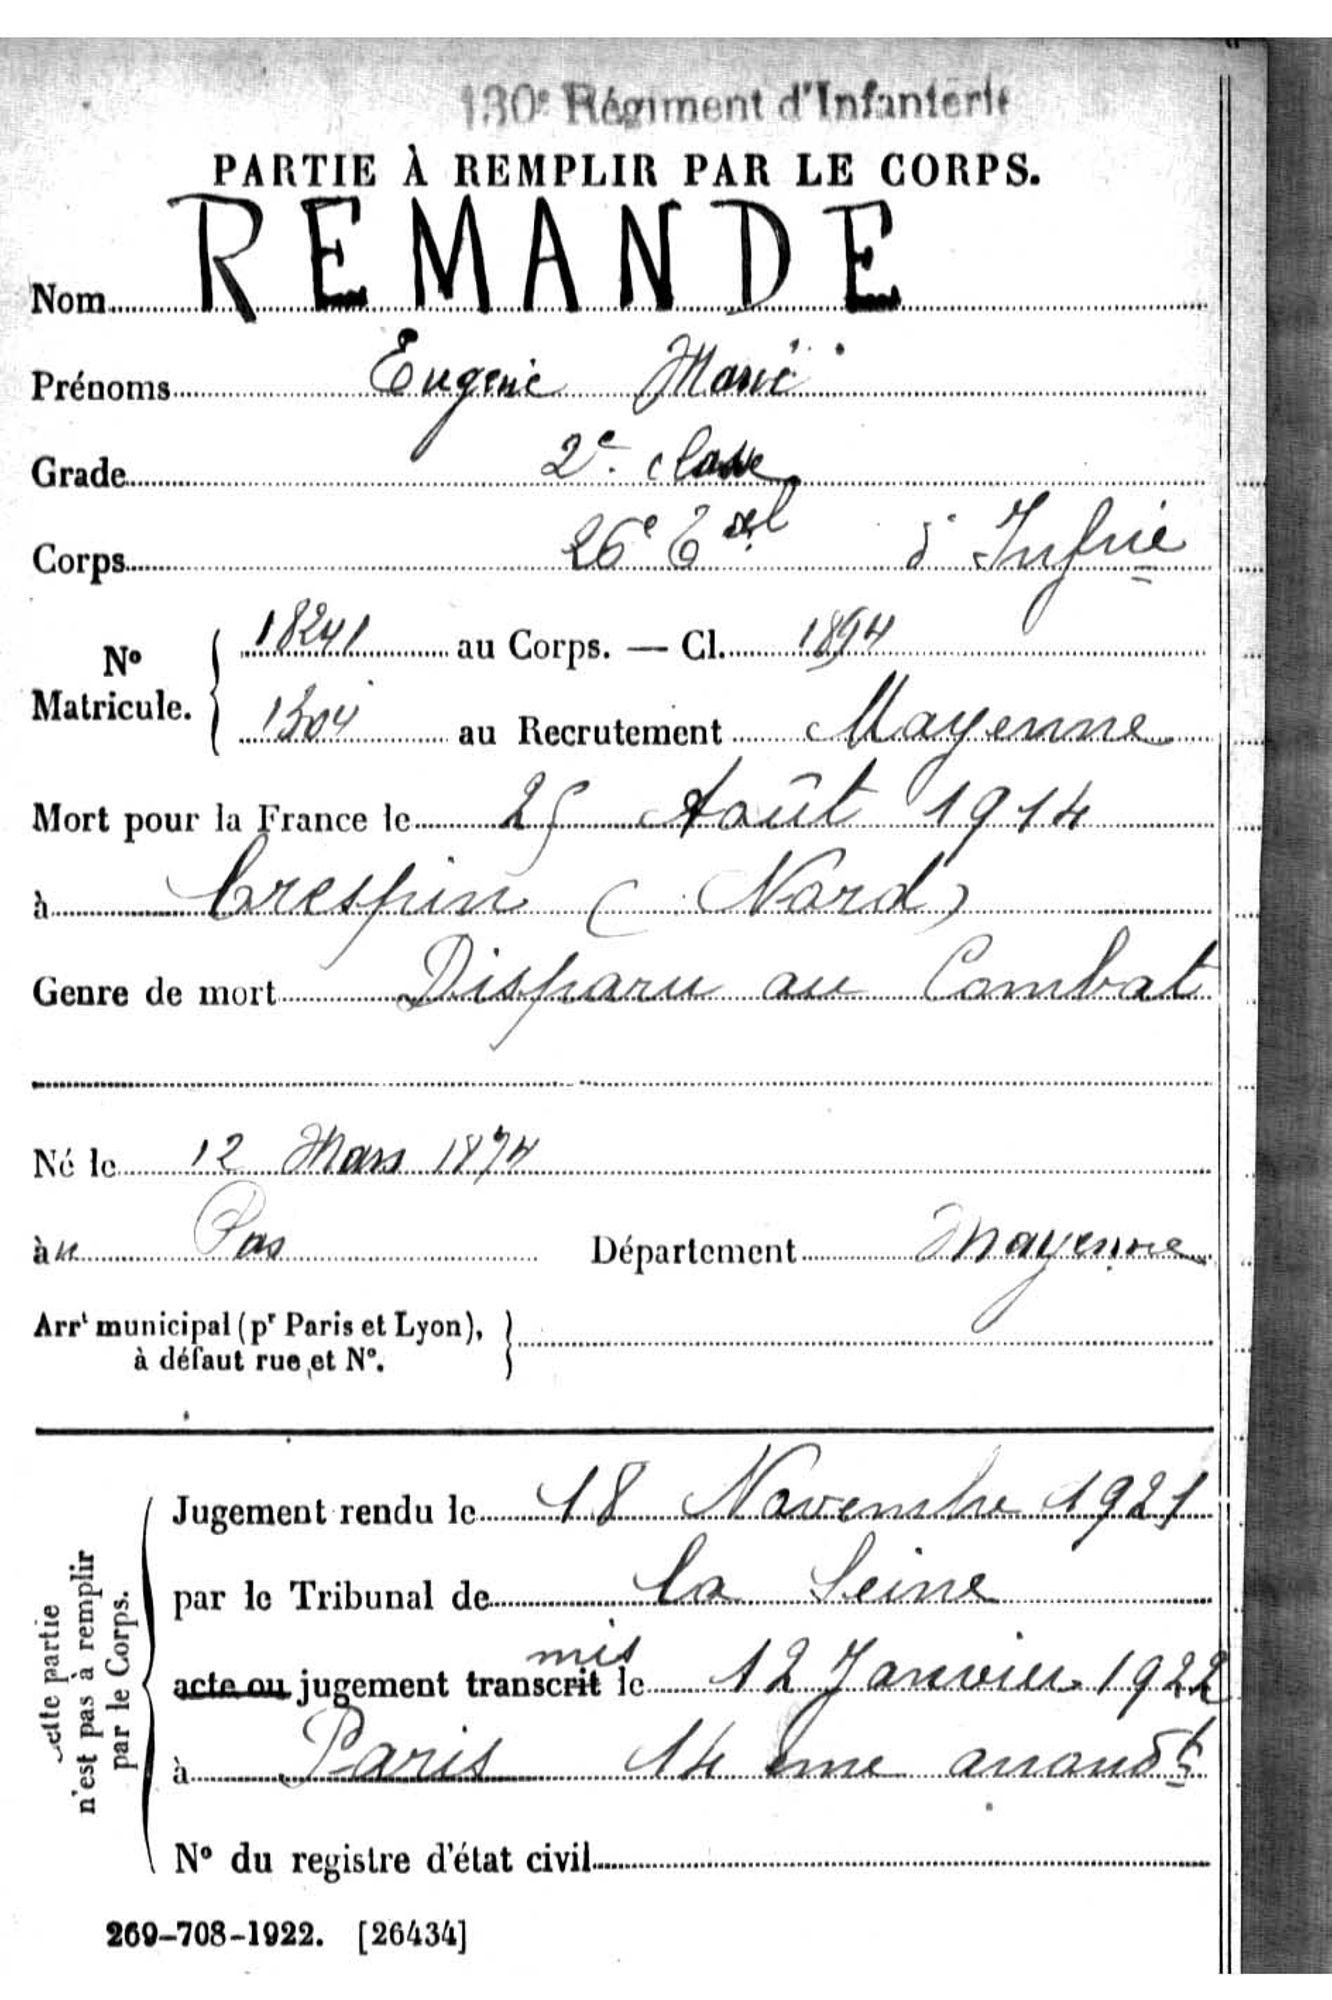 130e Régiment d'Infanterie
PARTIE À REMPLIR PAR LE CORPS.
Nom REMANDE
Prénoms Eugène Marie
Grade 2e classe
Corps 26e d'Infrie
No Matricule. 18241 au Corps. — Cl. 1894
1304 au Recrutement Mayenne
Mort pour la France le 25 Août 1914
à Crespin (Nord)
Genre de mort Disparu au Combat
Né le 12 Mars 1874
à u Pas Département Mayenne
Arrt municipal (pr Paris et Lyon),
à défaut rue et No.
Cette partie
n'est pas à remplir
par le Corps.
Jugement rendu le 18 Novembre 1921
par le Tribunal de la Seine
mis
acte ou jugement transcrit le 12 Janvier 1922
à Paris 14 eme arrondt
No du registre d'état civil
269-708-1922. [26434]